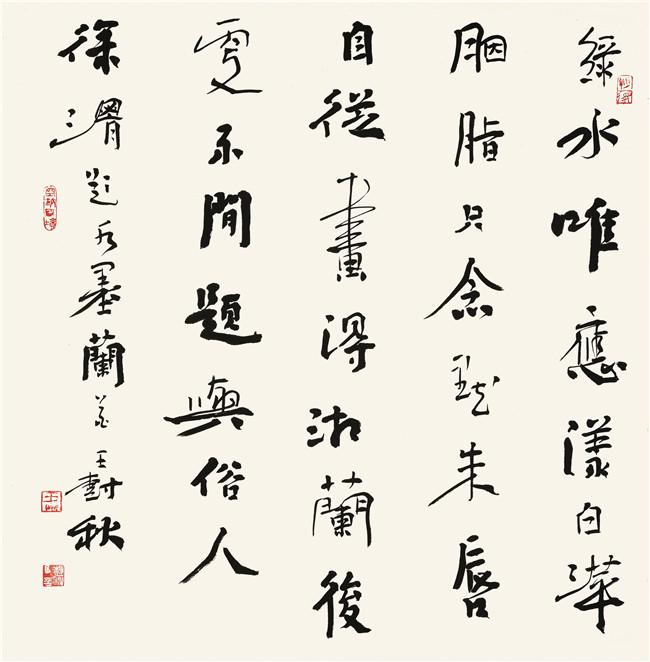 綠水唯應漾白萍
胭脂只念點朱唇
自從畫得湘蘭後
更不間題與俗人
徐渭題水墨蘭花 王樹秋